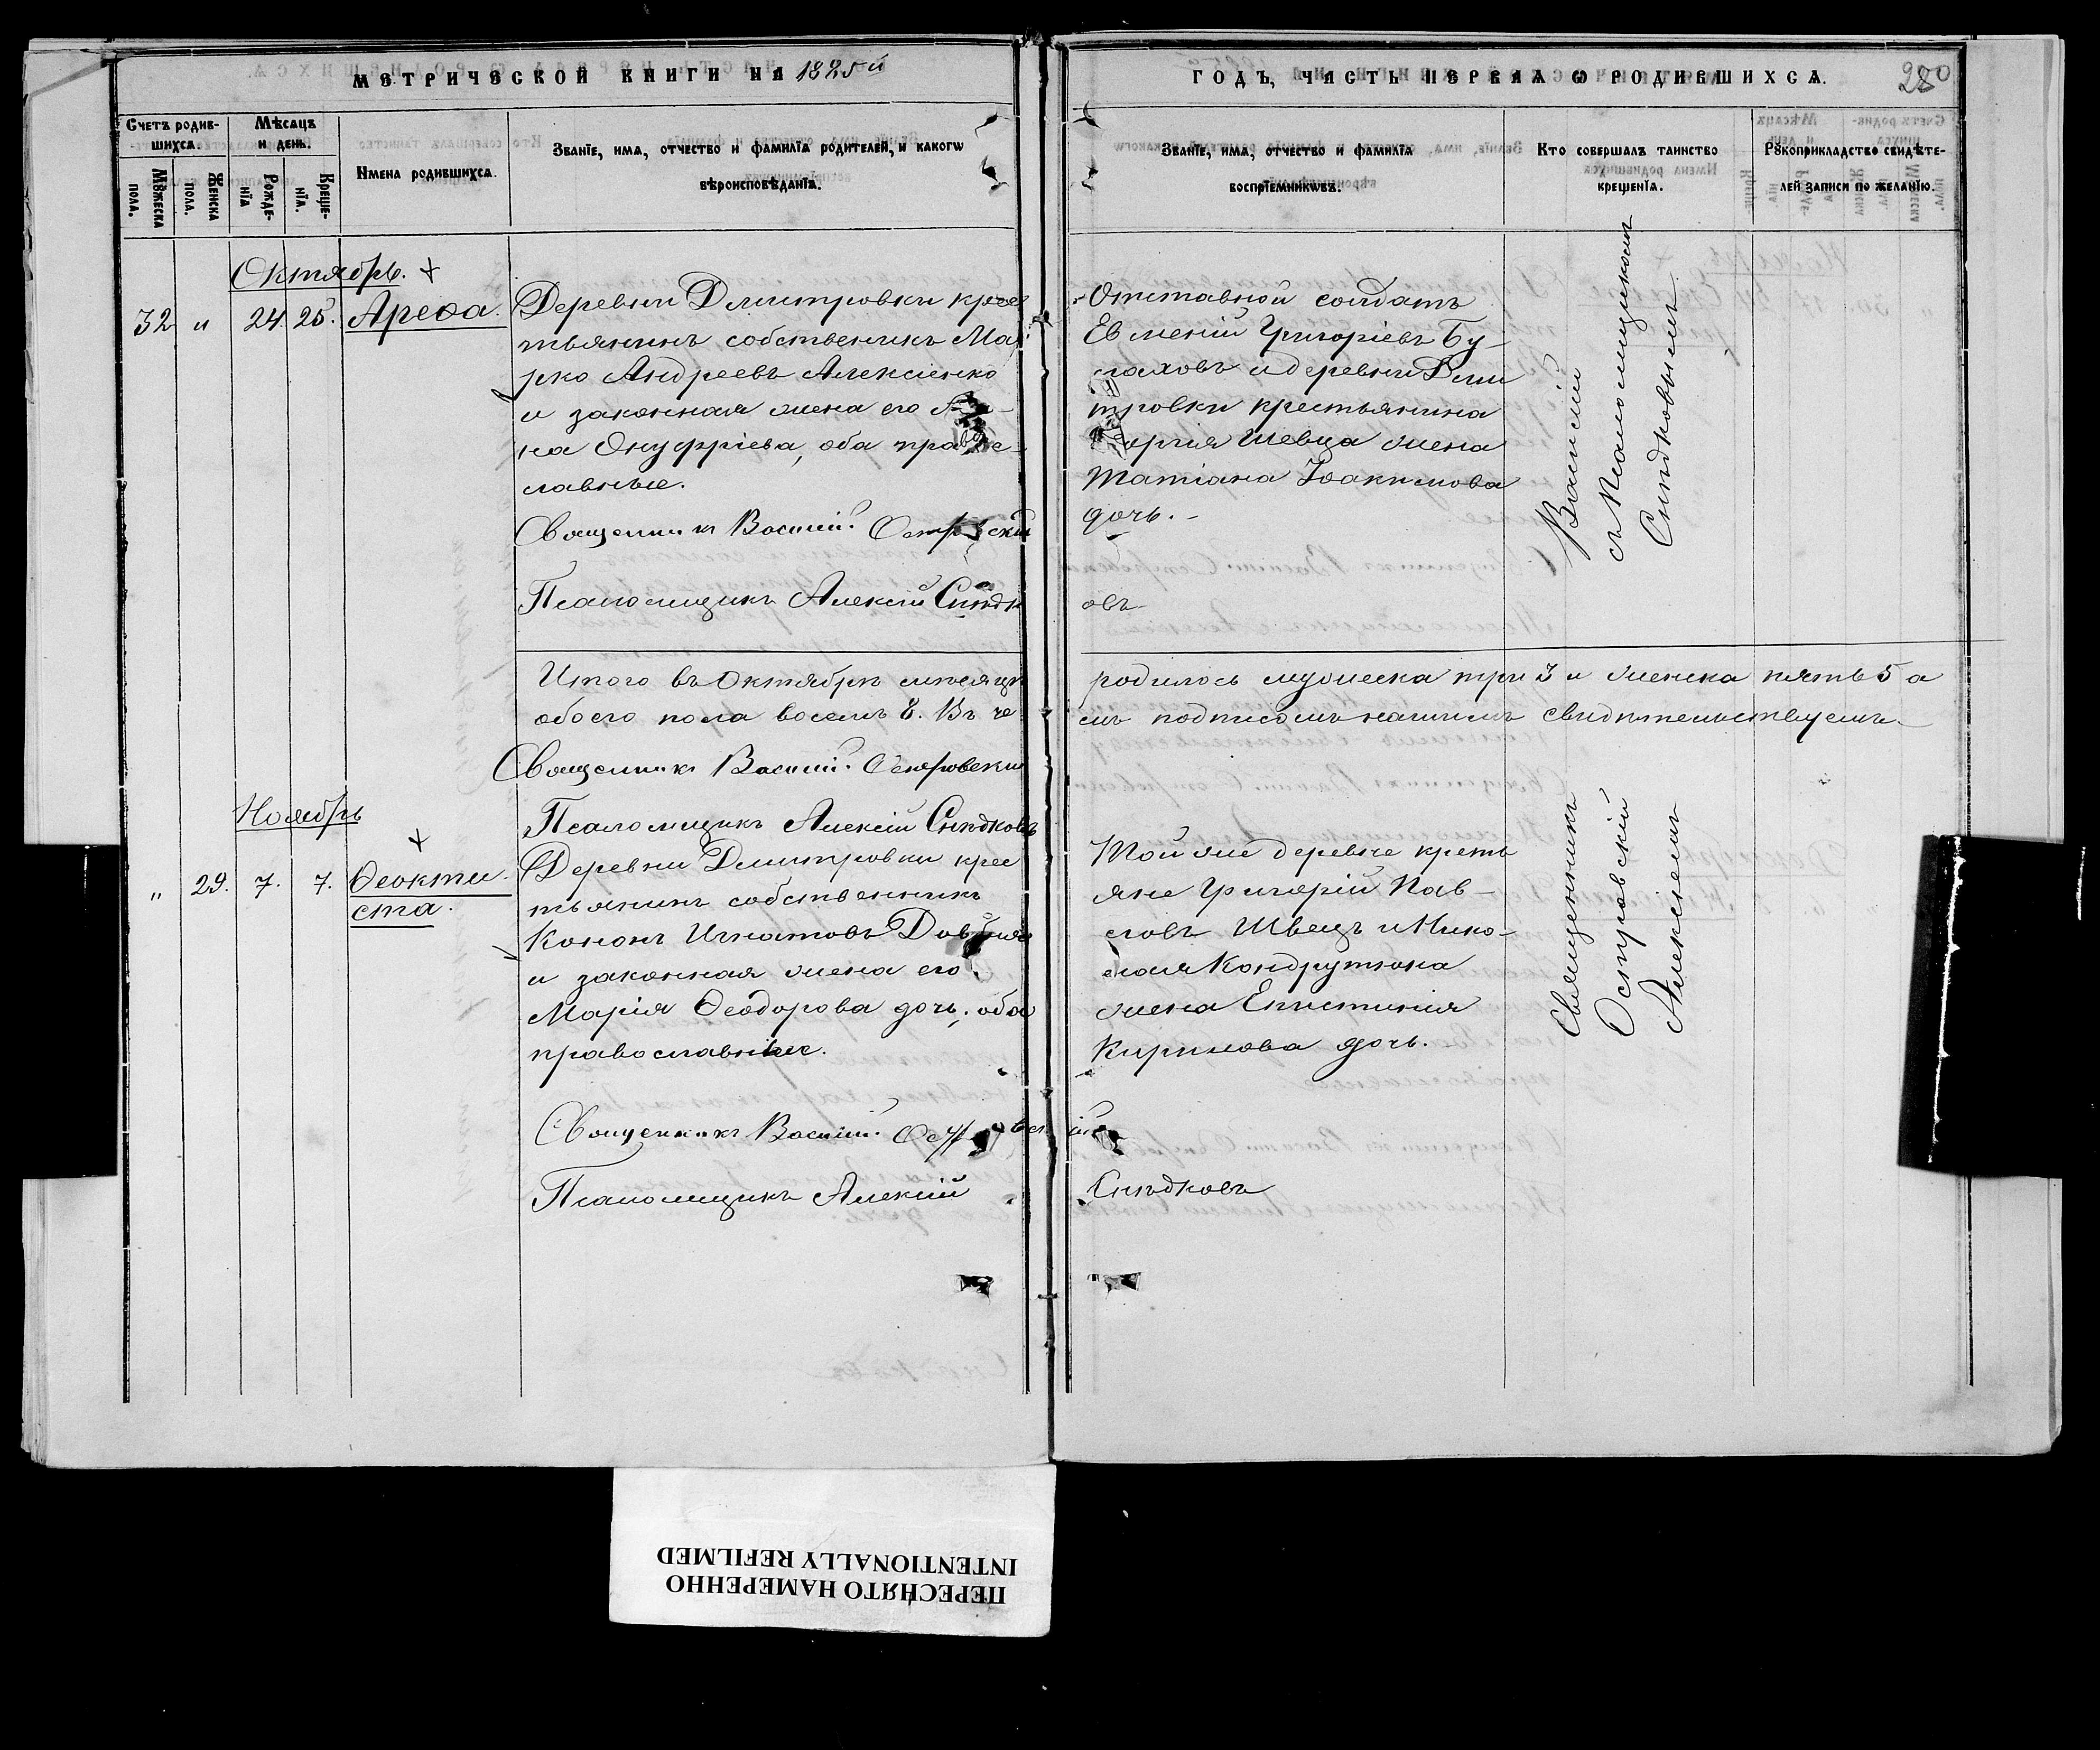 МЕТРИЧЕСКОЙ КНИГИ НА 1885й
ГОДЪ, ЧАСТЬ ПЕРВАЯ Ѡ РОДИВШИХСѦ.
280
Счетъ родив-
шихсѧ.
Мѣсѧцъ
и день.
Мꙋжеска
пола.
Женска
пола.
Рожде-
нїѧ
Креще-
нїѧ.
Имена родившихсѧ.
Званїе, имѧ, отчество и фамилїѧ родителей, и какогѡ
вѣроисповѣданїѧ.
Званїе, имѧ, отчество и фамилїѧ
воспрїемникѡвъ.
Кто совершалъ таинство
крещенїѧ.
Рꙋкоприкладство свидѣте-
лей записи по желанїю.
Октябрь.
32 " 24. 25. Ареѳа.
Деревни Дмитровки крес
тьянинъ собственикъ Ма
рко Андреевъ Алексіенко
и законная жена его
на Онуфріева, оба право
славные.
Священникъ Василій Островскій
Псаломщикъ Алексій Снѣдк
Отставной солдатъ
Евменій Григоріевъ Бу-
лаховъ и деревни Дми
тровки крестьянина
Шевца жена
Татіана Іоакимова
дочь.
овъ
Василій
съ Псаломщикомъ
Снѣдковымъ
Итого въ Октябрѣ мѣсяцѣ
родилось мужеска три 3 и женска пять 5 а
обоего пола восемь 8. Въ че
мъ подписомъ нашимъ свидѣтельствуемъ.
Священникъ Василій Островскій
Псаломщикъ Алексій Снѣдковъ
Ноябрь
" 29. 7. 7. Ѳеокти-
ста.
Деревни Дмитровки крес
тьянинъ собственникъ
Кононъ Игнатовъ
и законная жена его
Марія Ѳеодорова дочь, оба
православные.
Священникъ Василій Островскій
Псаломщикъ Алексій
Той же деревне кресть
яне Григорій Пав-
ловъ Швецъ и Нико-
лая Кондрутюка
жена Епистимія
Кирилова дочь.
Снѣдковъ
Священникъ
Островскій
Алексѣемъ
ПЕРЕСНЯТО НАМЕРЕННО
INTENTIONALLY REFILMED